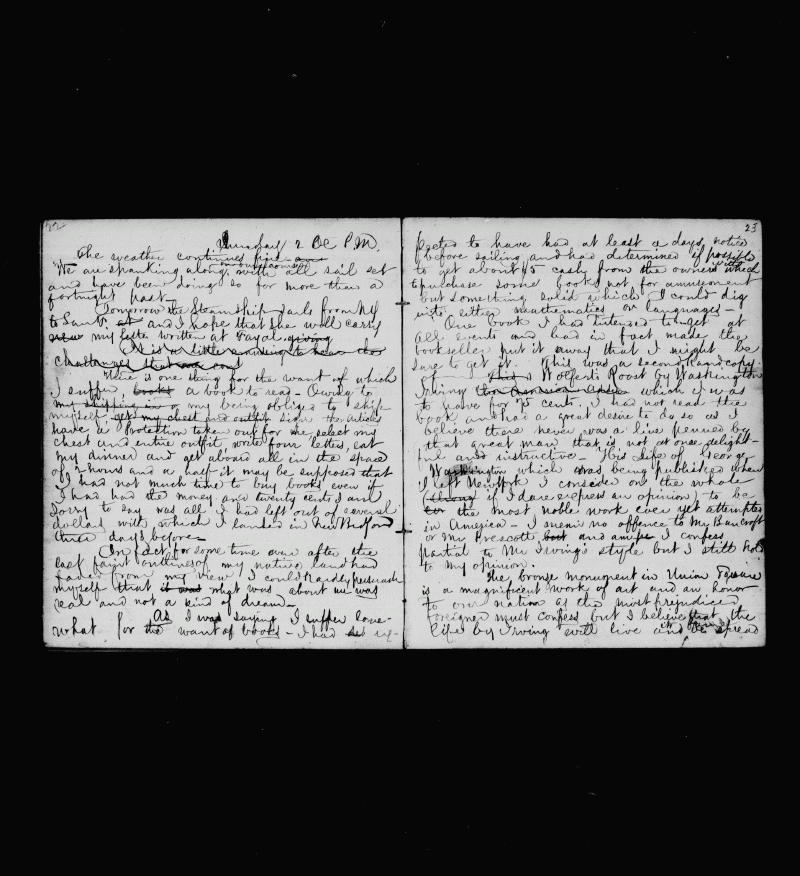 22
Thursday 2 Oc P.M.
The weather continues fine and
on our course
We are spanking along with all sail set
and have been doing so for more than a
fortnight past
Tomorrow the Steamship sails from NY
to and I hope that she will carry
my letter written at Fayal giving
It is a little amusing to hear the
challenges that was
There is one thing for the want of which
I suffer books a book to read - Owing to
my shipping in a my being obliged to ship
myself get my chest and outfit sign the articles
have a protection taken out for me select my
chest and entire outfit write four letters, eat
my dinner and get aboard all in the space
of 2 hours and a half it may be supposed that
I had not much time to buy books even if
I had had the money and twenty cents I am
sorry to say was all I had left out of several
dollars with which I landed in New Bedford
three days before
In fact for some time even after the
last faint outlines of my native land had
faded from my view I could hardly persuade
myself that it was what was about me was
real and not a kind of dream -
As I was saying I suffer some-
what for the want of books - I had ex-
23
pected to have had at least a days notice
before sailing and had determined if possible
to get about 5 cash from the owners with which
to purchase some books not for amusement
but something solid which I could dig
into either mathematics or languages -
One book I had intended to get at
all events and had in fact made the
bookseller put it away that I might be
sure to get it. This was a second hand copy
of This Wolfert's Roost by Washington
Irving which I was
to have for 75 cents. I had not read the
book and had a great desire to do so as I
believe there never was a line penned by
that great man that is not at once delight-
ful and instructive - His life of George
Washington which was being published when
I left New York I consider on the whole
(strong if I dare express an opinion) to be
the most noble work ever yet attempted
in America - I mean no offence to Mr Bancroft
or Mr Prescott but and I confess
partial to Mr Irving's style but I still hold
to my opinion.
The bronze monument in Union Square
is a magnificent work of art and an honor
to our nation as the most prejudiced
foreigner must confess but I believe that the
life by Irving will live and be spread